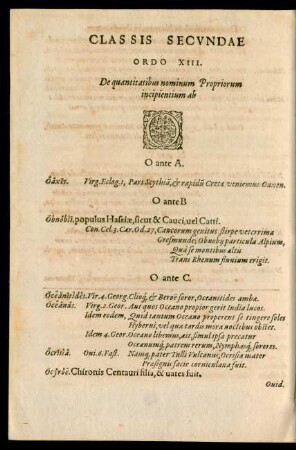 CLASSIS SECVNDAE
ORDO XIII.
De quantitatibus nominum Propriorum
incipientium ab
O
O ante A.
Oaxes. Virg. Eclog.1, Pars Scythiã, & rapidũ Cretæ veniemus Oaxen.
O ante B
Obnobii. populus Hassiæ, sicut & Cauci, uel Catti.
Con. Cel. 3. Car. Od. 27, Caucorum genitus stirpe veterrima
Obnobij particula Alpium,
Qua se montibus altis
Trans Rhenum finnium erigit.
O ante C.
Vir. 4. Georg. Clioq́, & Beroë soror, Oceanitides ambæ.
Oceãnus. Virg. 2. Geor. Aut quos Oceano propior gerit India lucos.
Idem eodem, Quid tantum Oceano properent se tingere soles
Hyberni, vel qua tardis mora noctibus obstet.
Idem 4. Geor. Oceano libemus, ait, simul ipsa precatur
Oceanumq́, patrem rerum, Nymphasq́, sorores.
Ocrisia. Oui. 6. Fast. Namq́, pater Tulli Vulcanus, Ocrisia mater
Præsignis facie corniculana fuit.
Chironis Centauri filia, & uates fuit.
Ouid.